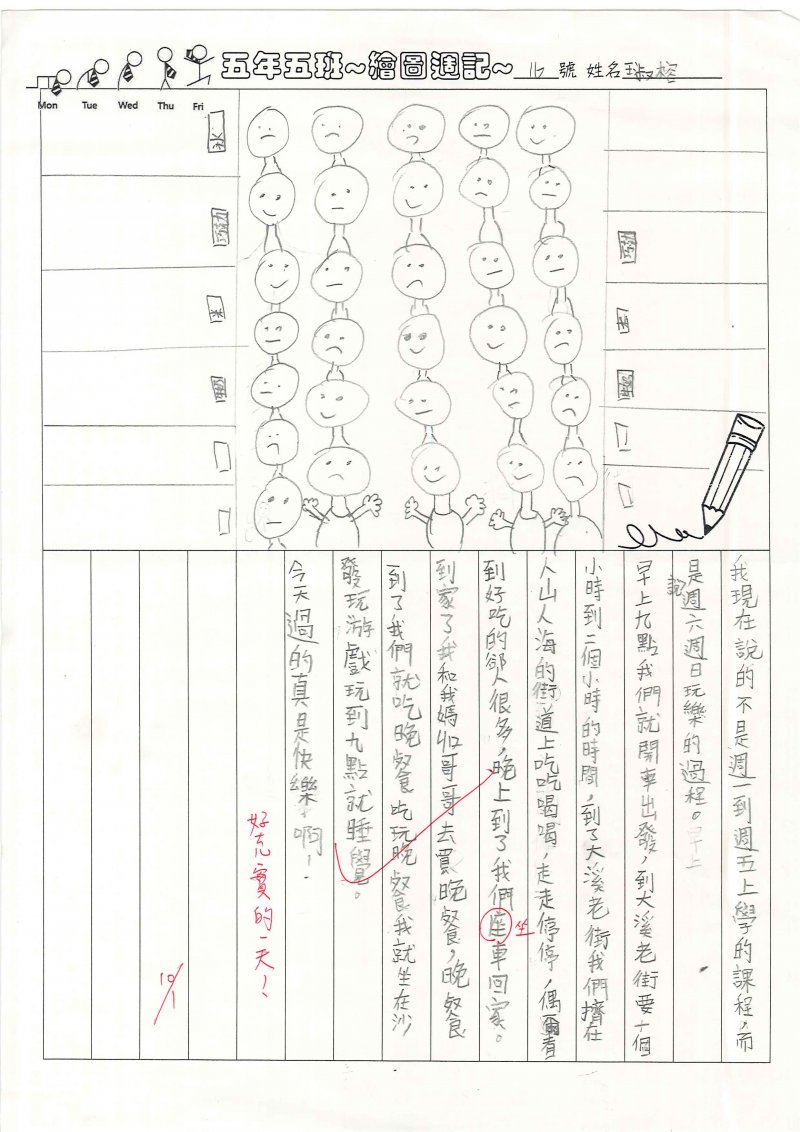 五年五班~繪圖週記~ 號 姓名
Mon Tue Wed Thu Fri
我現在說的不是週一到週五上學的課程,而
是說週六週日玩樂的過程。早上
早上九點我們就開車出發,到大溪老街要十個
小時到二個小時的時間,到了大溪老街我們擠在
人山人海的街道上吃吃喝喝,走走停停,偶爾看
到好吃的卻人很多,晚上到了我們座車回家。
坐
到家了我和我媽和哥哥去買晚餐,晚餐
到了我們就吃晚餐吃玩晚餐我就坐在沙
發玩游戲玩到九點就睡覺。
今天過的真是快樂啊!
好充實的一天!
10/1